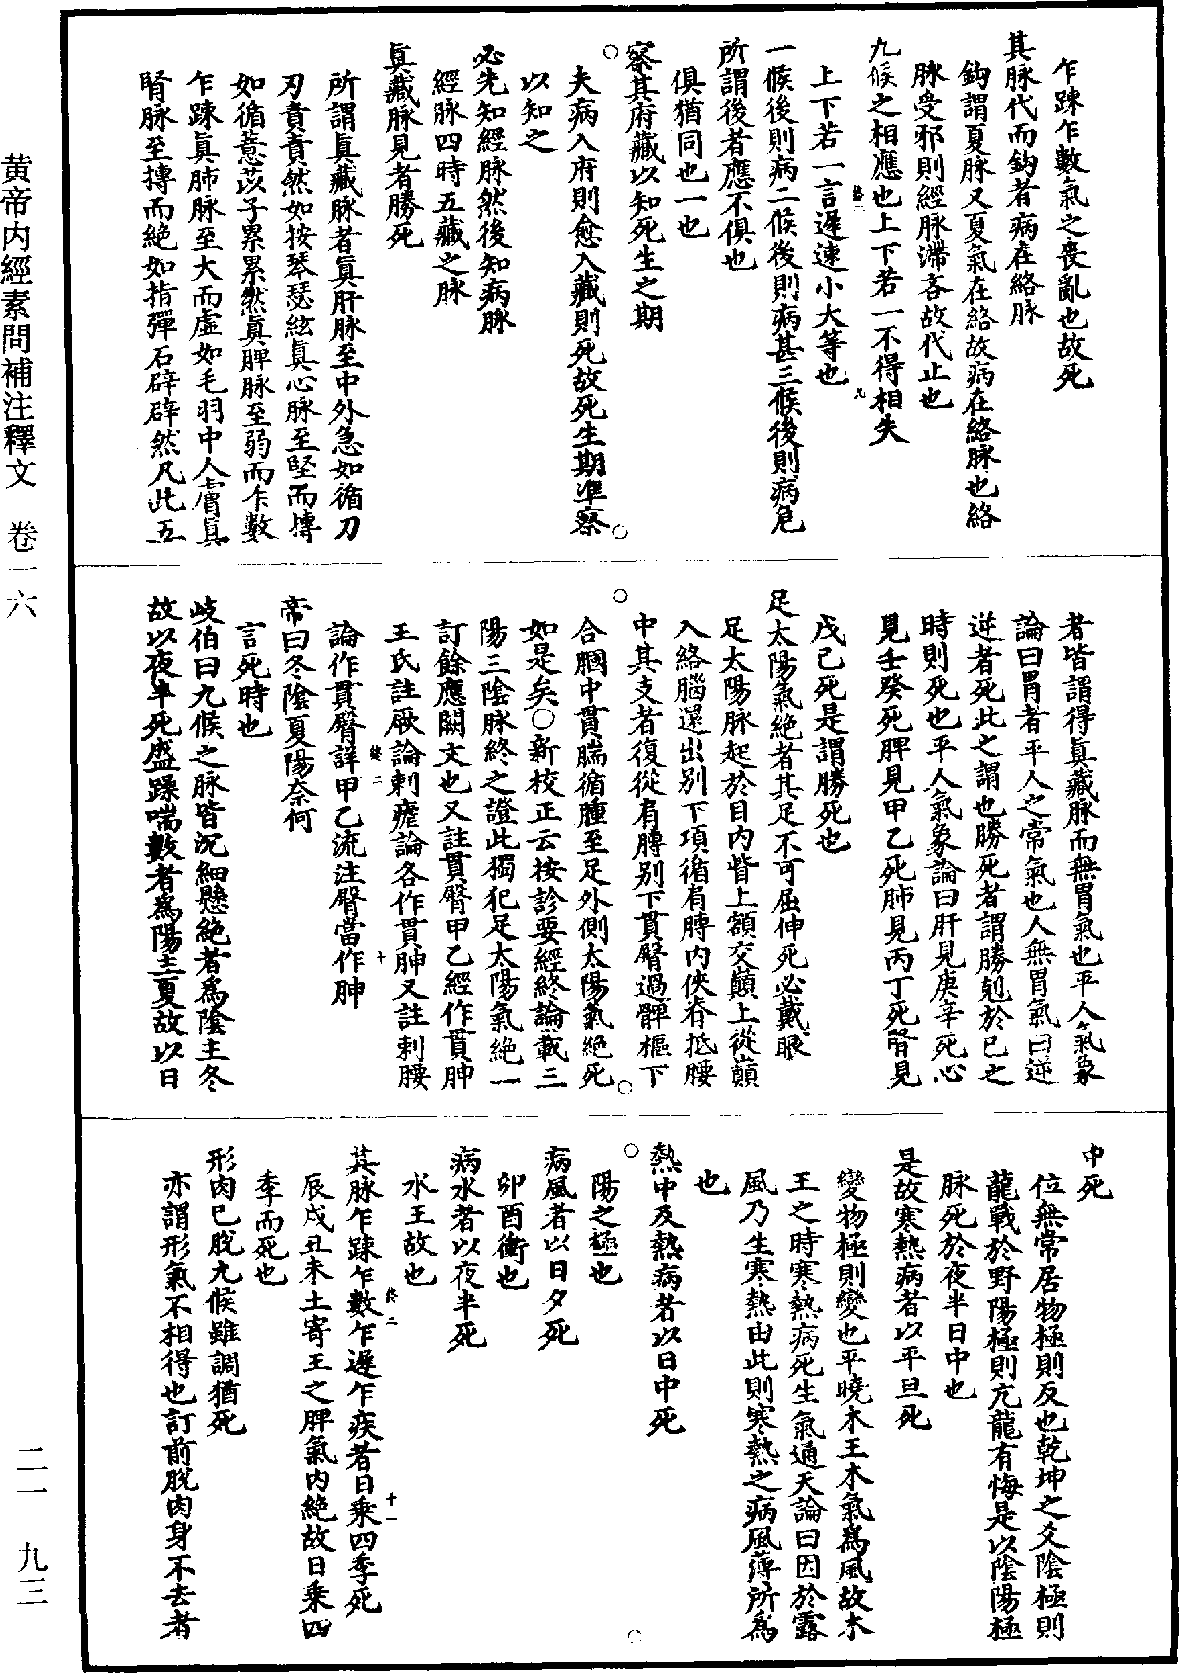 乍踈乍數氣之喪亂也故死
其脉代而鈎者病在絡脉
鈎謂夏脉又夏氣在絡故病在絡脉也絡
脉受邪則經脉滯吝故代止也
九候之相應也上下若一不得相失
上下若一言遲速小大等也
一候後則病二候後則病甚三候後則病危
所謂後者應不俱也
俱猶同也一也
察其府藏以知死生之期
夫病入府則愈入藏則死故死生期準察
以知之
必先知經脉然後知病脉
經脉四時五藏之脉
眞藏脉見者勝死
所謂眞藏脉者眞肝脉至中外急如循刀
刃責責然如按琴瑟絃眞心脉至堅而摶
如循薏苡子累累然眞脾脉至弱而乍數
乍踈眞肺脉至大而虛如毛羽中人膚眞
腎脉至摶而絶如指彈石辟辟然凡此五
者皆謂得眞藏脉而無胃氣也平人氣象
論曰胃者平人之常氣也人無胃氣曰逆
逆者死此之謂也勝死者謂勝剋於已之
時則死也平人氣象論曰肝見庚辛死心
見壬癸死脾見甲乙死肺見丙丁死腎見
戊己死是謂勝死也
足太陽氣絶者其足不可屈伸死必戴眼
足太陽脉起於目内眥上額交巔上從巔
入絡腦還出别下項循肩膊内俠脊抵腰
中其支者復從肩膊别下貫臀過髀樞下
合膕中貫腨循踵至足外側太陽氣絶死
如是矣○新校正云按診要經終論載三
陽三陰脉終之證此獨犯足太陽氣絶一
訂餘應闕文也又註貫臀甲乙經作貫胂
王氏註厥論刺瘧論各作貫胂又註刺腰
論作貫臀詳甲乙流注臀當作胂
帝曰冬陰夏陽奈何
言死時也
岐伯曰九候之脉皆沉細懸絶者爲陰主冬
故以夜半死盛躁喘數者爲陽主夏故以日
中死
位無常居物極則反也乾坤之爻陰極則
龍戰於野陽極則亢龍有悔是以陰陽極
脉死於夜半日中也
是故寒熱病者以平旦死
變物極則變也平曉木王木氣爲風故木
王之時寒熱病死生氣通天論曰因於露
風乃生寒熱由此則寒熱之病風薄所爲
也
熱中及熱病者以日中死
陽之極也
病風者以日夕死
卯酉衝也
病水者以夜半死
水王故也
其脉乍踈乍數乍遲乍疾者日乘四季死
辰戌丑未土寄王之脾氣内絶故日乘四
季而死也
形肉已脫九候雖調猶死
亦謂形氣不相得也訂前脫肉身不去者
黄帝内經素問補注釋文　卷一六
二一　九三